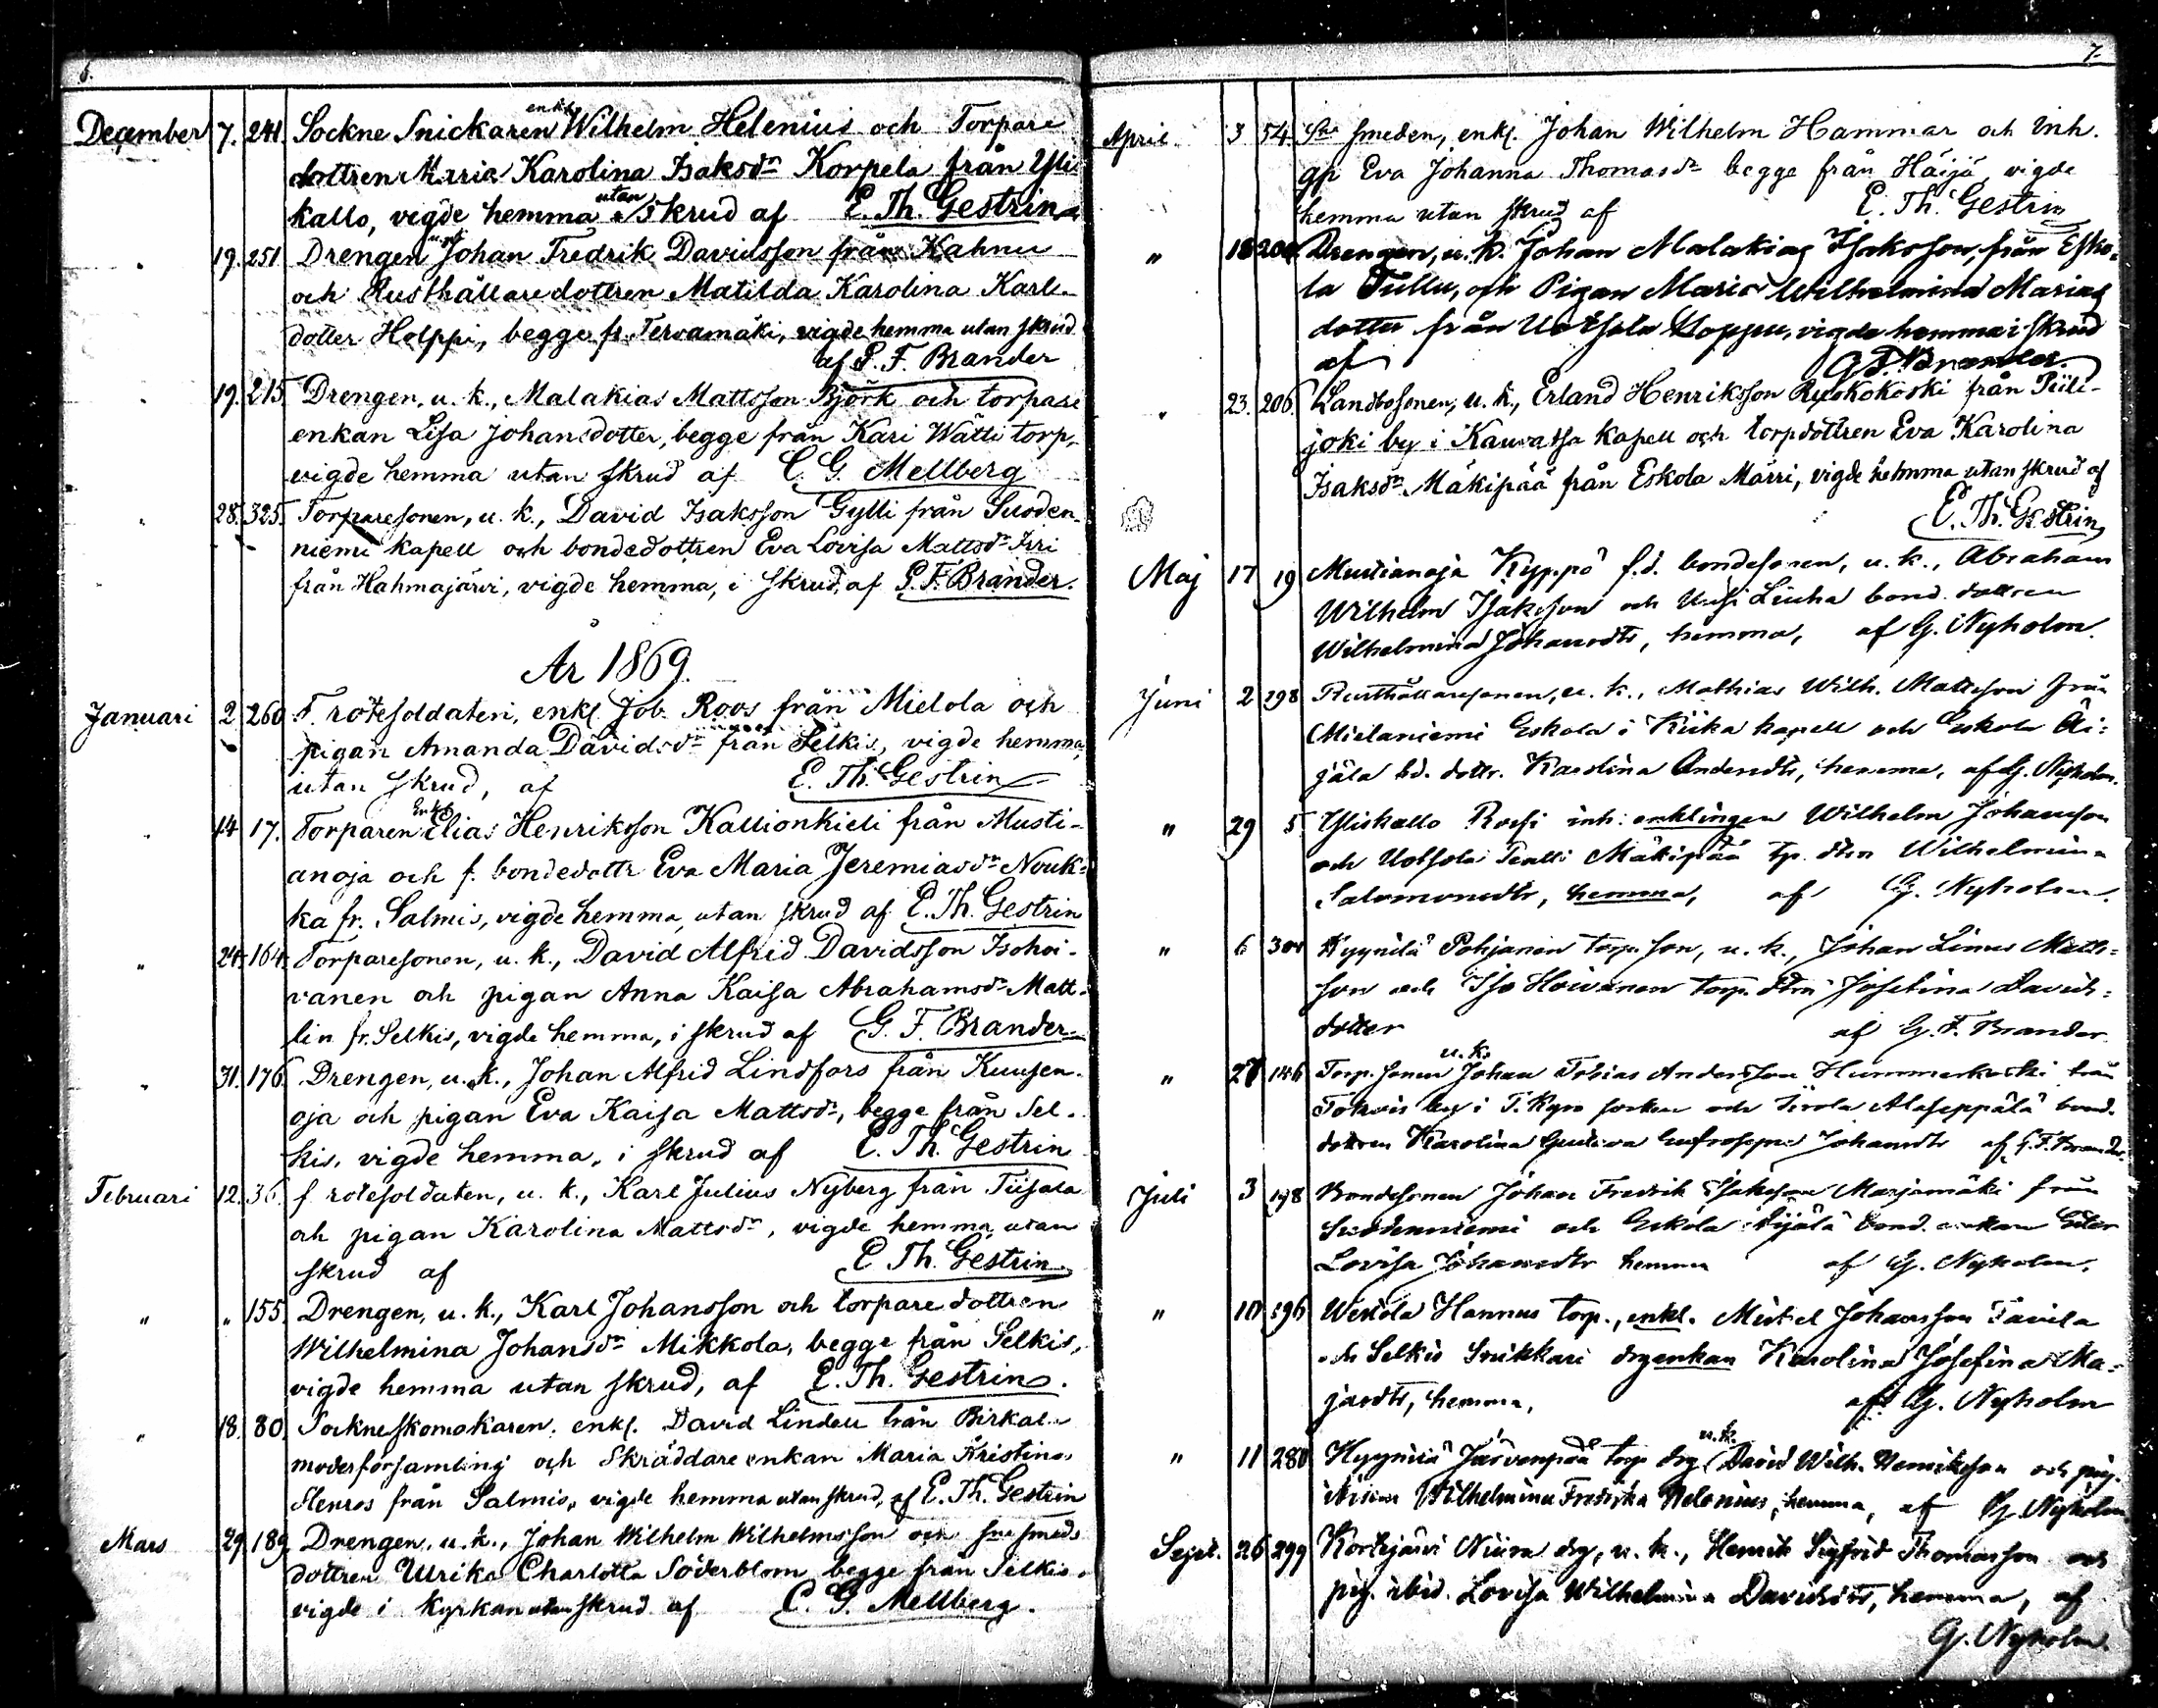 6.
December 7. 241. Sockne Snickaren enkl. Wilhelm Helenius och Torpare
dottren Maria Karolina Isaksdr Korpela från Yli
kallo, vigde hemma utan Skrud af E. Th. Gestrin
19. 251 Drengen Johan Fredrik Davidsson från Kahnu
och Rusthållaredottren Matilda Karolina Karls
dotter Helppi, begge fr. Tervamäki, vigde hemma utan skrud
af G. F. Brander
19. 215. Drengen, u. k., Malakias Mattsson Björk och torpare
enkan Lisa Johansdotter, begge från Kari Wätti torp,
vigde hemma utan skrud af C. G. Mellberg
28. 325. Torparesonen, u. k., David Isaksson Gylli från Suoden-
niemi kapell och bondedottren Eva Lovisa Mattsdr
från Hahmajärvi, vigde hemma, i skrud, af G. F. Brander.
År 1869.
Januari 2 260 F. rotesoldaten, enkl. Job. Roos från Mielola och
pigan Amanda Davidsdr från Selkis, vigde hemma,
utan skrud, af E. Th. Gestrin
14 17. Torparen Enkl. Elias Henriksson Kallionkieli från Musti-
anoja och f. bondedottr Eva Maria Jeremiasdr Nouk-
ka fr. Salmis, vigde hemma utan skrud af E. Th. Gestrin
" 24. 164. Torparesonen, u. k., David Alfrid Davidsson Isohoi-
vanen och pigan Anna Kaisa Abrahamsdr Matt-
lin fr. Selkis, vigde hemma, i skrud af G. F. Brander
" 31. 176. Drengen, u. k., Johan Alfrid Lindfors från Kuusen-
oja och pigan Eva Kaisa Mattsdr, begge från Sel-
kis, vigde hemma, i skrud af E. Th. Gestrin
Februari 12. 36. f rotesoldaten, u. k., Karl Julius Nyberg från Tüsala
och pigan Karolina Mattsdr, vigde hemma utan
skrud af E Th. Gestrin
" " 155. Drengen, u. k., Karl Johansson och torpare dottren
Wilhelmina Johansdr Mikkola, begge från Selkis,
vigde hemma utan skrud, af E. Th. Gestrin.
" 18. 80. Sockneskomakaren, enkl. David Lindell från Birkala
moderförsamling och Skräddare enkan Maria Kristina
Stenros från Salmis, vigde hemma utan skrud, af E. Th. Gestrin
Mars 29. 189. Drengen, u. k., Johan Wilhelm Wilhelmsson och Sne smeds
dottren Ulrika Charlotta Söderblom begge från Selkis,
vigde i kyrkan utan skrud af C. G. Mellberg.
7.
April 3 54. Sne smeden, enkl. Johan Wilhelm Hammar och Inh.
gp Eva Johanna Thomasdr begge från Häijä, vigde
hemma utan skrud af E. Th. Gestrin
" 18 204. Drengen, u. k. Johan Malakias Isaksson, från Esko-
la Tullu, och Pigan Maria Wilhelmina Marias
dotter från Uotsola Hoppu, vigde hemma i skrud
af G F. Brander.
23. 206. Landbosonen, u. k., Erland Henriksson Ryokokoski från Piili-
joki by i Kauvatsa kapell och torpdottren Eva Karolina
Isaksdr Mäkipää från Eskola Märri, vigde hemma utan skrud af
E. Th. Gestrin
Maj 17 19 Mustianoja Kyppö f.d. bondesonen, u. k., Abraham
Wilhelm Isaksson och Uusi Liuha bond. dottren
Wilhelmina Johansdtr, hemma, af G. Nyholm.
Juni 2 298 Rusthållaresonen, u. k., Mathias Wilh. Mattsson från
Mielaniemi Eskola i Kiika kapell och Eskola Äi-
jälä bd. dottr. Karolina Andersdtr, hemma, af G. Nyholm.
" 29 5 Yliskallo Rossi inh: enklingen Wilhelm Johansson
och Uotsola Pentti Mäkipää tp. dtrn Wilhelmina
Salomonsdtr, hemma, af G. Nyholm.
" 6 304 Kyynilä Pohjanen torp. son, u. k., Johan Linus Matts-
son och Iso Hoivanen torp. dtrn Josefina Davids-
dotter af G. F. Brander
" 27 146 Torp. sonen u. k. Johan Tobias Andersson Hummerkoski från
by i T. Kyro socken och Sirola Alaseppälä bond.
dottren Karolina Gustava Eufrosyne Johansdtr af G. F. Brander.
Juli 3 198 Bondesonen Johan Fredrik Isaksson Marjamäki från
Suodenniemi och Eskola Äijälä bond. enkan
Lovisa Johansdtr hemma af G. Nyholm.
" 10 196 Wesola Hannus torp., enkl. Mickel Johansson Tavela
och Selkis Snikkari drgenkan Karolina Josefina Ma-
jasdtr, hemma, af G. Nyholm
" 11 280 Kyynilä Järvenpää torp. drg. u. k. David Wilh. Henriksson och pig.
Wilhelmina Fredrika Helenius, hemma, af G. Nyholm
Sept. 26 299 Kortejärvi Niira drg, u. k., Henrik Sigfrid Thomasson och
pig. ibid. Lovisa Wilhelmina Davidsdtr, hemma, af
G. Nyholm.